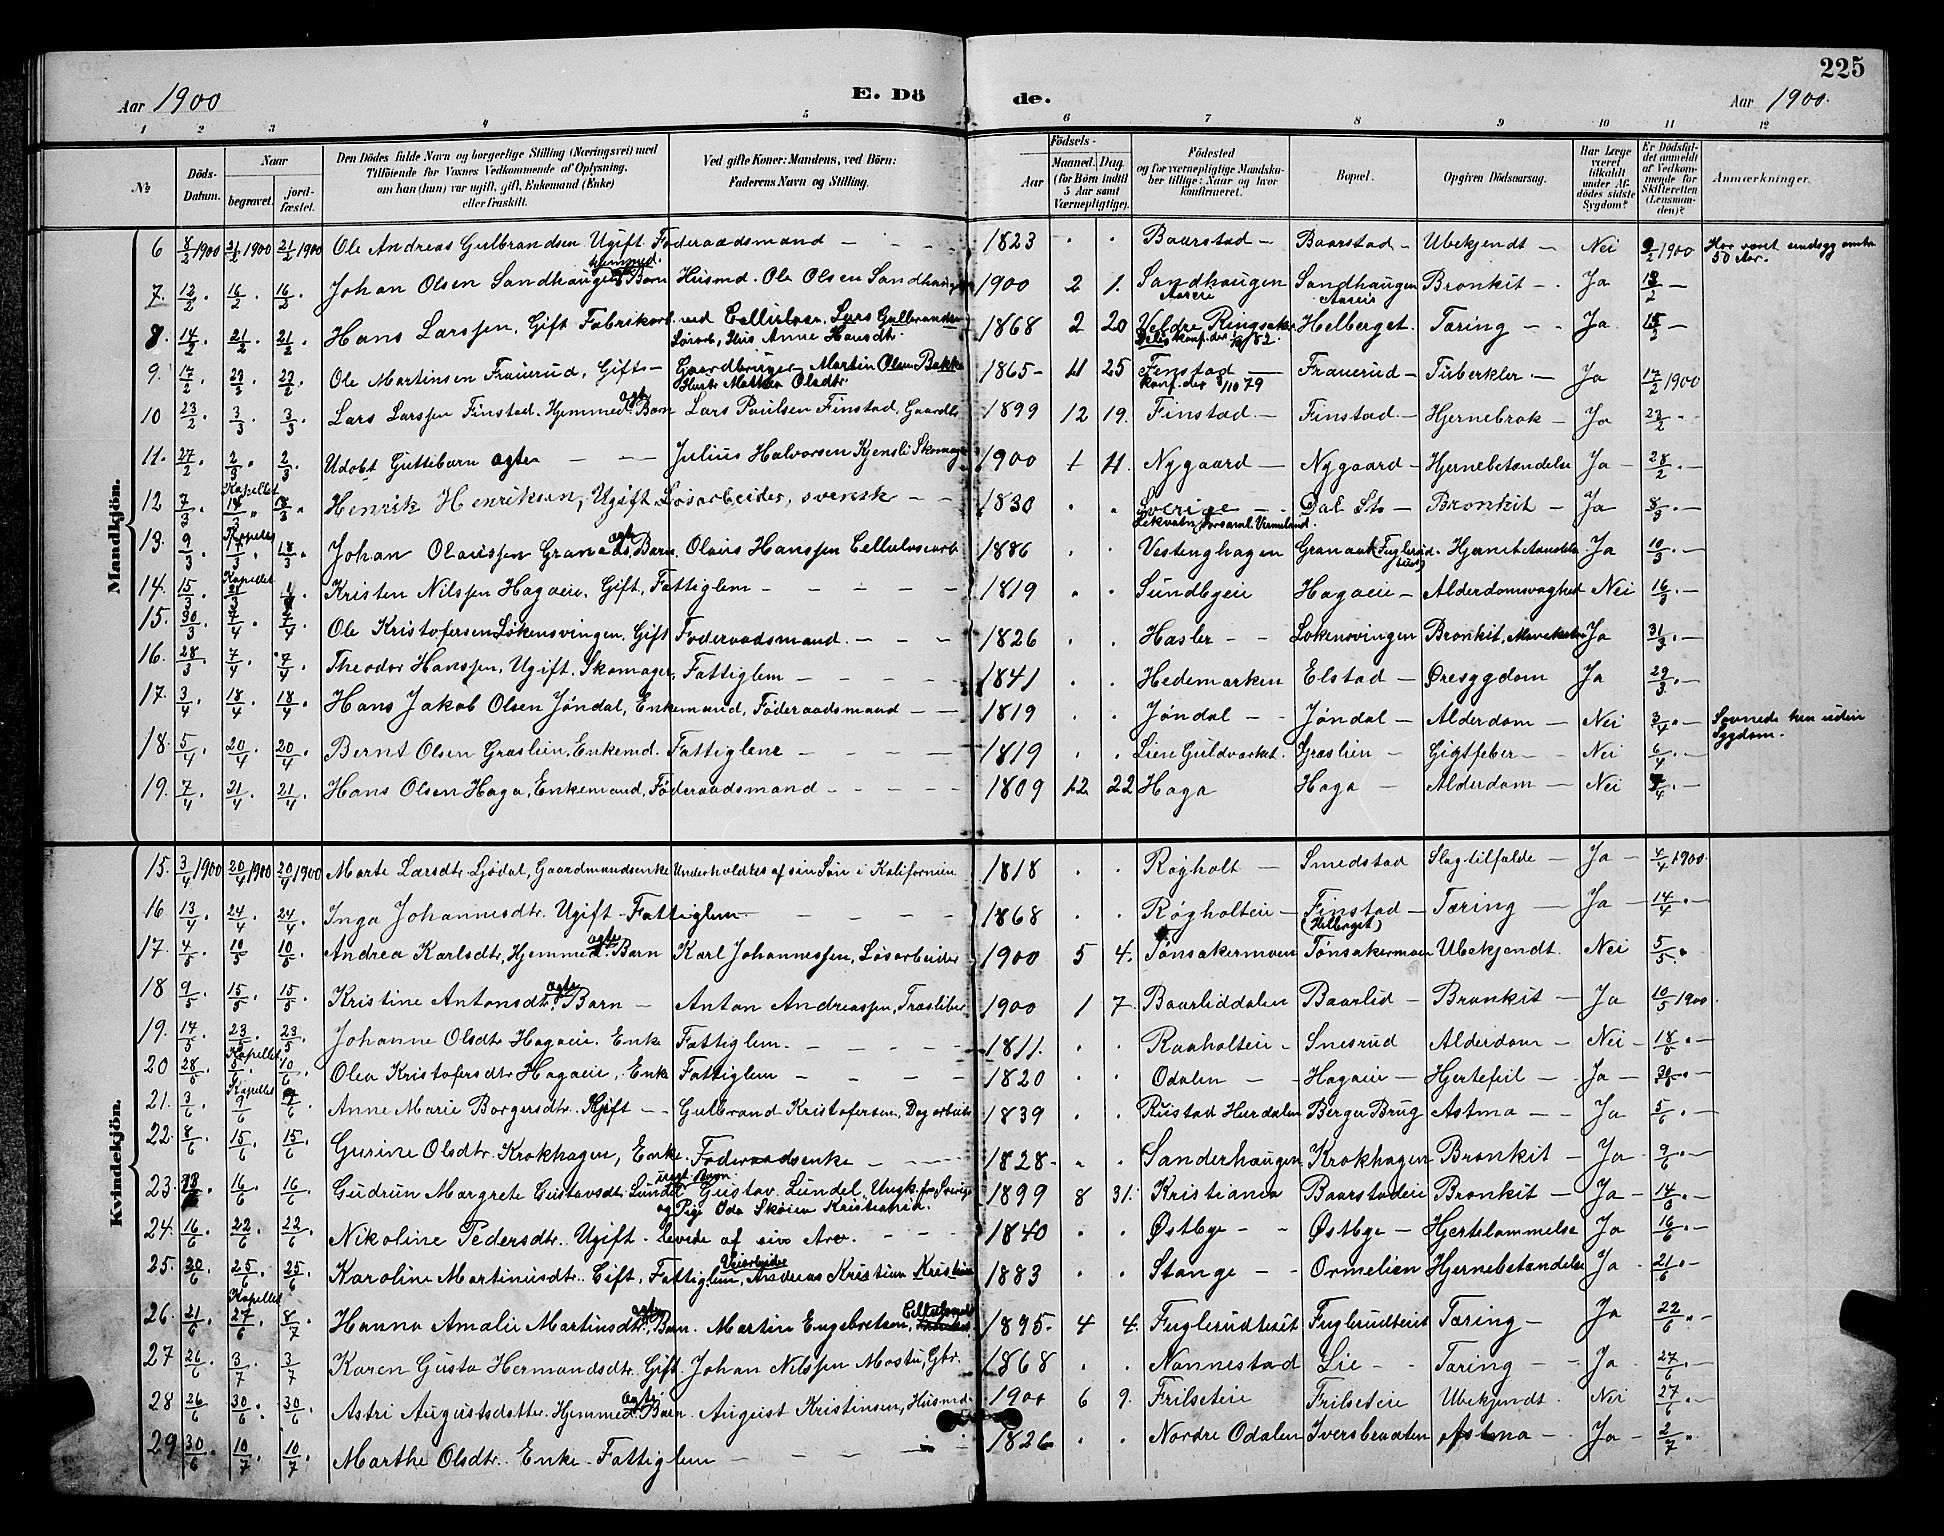 225
Aar 1900 E. Dö de. Aar 1900.
1 2 3 4 5 6 7 8 9 10 11 12
№ Döds-Datum. Naar begravet. jordfæstet. Den Dödes fulde Navn og borgerlige Stilling (Næringsvei) med Tilföiende for Voxnes Vedkommende af Oplysning, om han (hun) var ugift, gift, Enkemand (Enke) eller fraskilt. Ved gifte Koner: Mandens, ved Börn: Faderens Navn og Stilling. Födsels- Aar Maaned. Dag. (for Börn indtil 5 Aar samt Værnepligtige). Födested og for værnepligtige Mandskaber tillige: Naar og hvor konfirmeret. Bopæl. Opgiven Dödsaarsag. Har Læge været tilkaldt under Afdödes sidste Sygdom? Er Dödsfaldet anmeldt af Vedkommende for Skifteretten (Lensmanden)? Anmærkninger.
Mandkjön.
6 8/2 1900 21/2 1900 21/2 1900 Ole Andreas Gulbrandsen Ugift Föderaadsmand – 1823 Baarstad – Baarstad – Ubekjendt – Nei 9/2 1900 Har været sindssyg omtr 50 Aar.
7. 12/2 16/2 16/2 Johan Olsen Sandhaugen Hjemmed. Barn Husmd. Ole Olsen Sandhaugen 1900 2 1. Sandhaugen Aaseie Sandhaugen Aaseie Bronkit – Ja 13/2 –
8. 14/2 21/2 21/2 Hans Larssen, Gift Fabrikarb. ved Cellulosen. Lars Gulbrandsen Løsarb, Hus Anne Hansdtr. 1868 2 20 Veldre Ringsaker konf. der 82. Helberget. Tæring – – Ja 15/2 –
9. 17/2 23/2 23/2 Ole Martinsen Frauerud, Gift – Gaardbruger Martin Olsen Bakke Hustr Mathea Olsdtr 1865 – 11 25 Finstad – konf. der /10 79 Frauerud – Tuberkler. – Ja 17/2 1900
10 23/2 3/3 3/3 Lars Larssen Finstad. Hjemmed. ægte Barn Lars Paulsen Finstad, Gaardbr 1899 12 19. Finstad. – Finstad – Hjernebrok – Ja 23/2
11. 27/2 2/3 2/3 Udöbt Guttebarn ægte – – Julius Halvorsen Kjensli Skomager 1900 1 11. Nygaard – Nygaard – Hjernebetændelse Ja – 28/2 –
12 7/3 Kapellet 14/3 18/3 Henrik Henriksen, Ugift Løsarbeider, svensk – – 1830 Sverige – Lekvatn Forsaml. Vermeland. Dal St. – Bronkit – Ja 8/3 –
13. 9/3 Kapellet 17/3 18/3 Johan Olaussen Granaas, ægte Barn. Olaus Hanssen Cellulosearb 1886 Vestenghagen Granaas (Fuglerud-huus) Hjernebetændelse Ja 10/3 –
14. 15/3 Kapellet 21/3 Kristen Nilssen Hagaeie, Gift, Fattiglem – – – – 1819 Sundbyeie Hagaeie – Alderdomsvaghed Nei 16/3 –
15. 30/3 7/4 7/4 Ole Kristofersen Løkensvingen. Gift Föderaadsmand. – – 1826 Hasler – – Løkensvingen Bronkit, Ja 31/3 –
16. 28/3 7/4 7/4 Theodor Hanssen, Ugift. Skomager, Fattiglem – – – 1841 Hedemarken Elstad – Øresygdom Ja 29/3 –
17. 3/4 18/4 18/4 Hans Jakob Olsen Jøndal, Enkemand, Føderaadsmand – – 1819 Jøndal – Jøndal – Alderdom – Nei 3/4 – Sovnede hen uden Sygdom.
18. 5/4 20/4 20/4 Bernt Olsen Græslien, Enkemd. Fattiglem – – – – 1819 Lien Guldværket. Græslien – Gigtfeber – Nei 6/4 –
19. 7/4 21/4 21/4 Hans Olsen Haga, Enkemand, Føderaadsmand – – – – 1809 12. 22 Haga Haga – Alderdom – Nei 7/4 –
Kvindekjön.
15. 3/4 1900 20/4 1900 20/4 1900 Marte Larsdtr Ljødal, Gaardmandsenke Underholdtes af sin Søn i Kalifornien 1818 Røgholt – Smedstad Slagtilfælde – Ja – 4/4 1900.
16 13/4 24/4 24/4 Inga Johannesdtr. Ugift – Fattiglem – – – – 1868 Røgholteie – Finstad (Helberget) – Tæring – Ja – 14/4 –
17. 4/5 10/5 10/5 Andrea Karlsdtr, Hjemmed. ægte Barn Karl Johannessen, Løsarbeider 1900 5 4. Tønsakermoen Tønsakermoen Ubekjendt. Nei 5/5
18 9/5 15/5 15/5 Kristine Antonsdtr. ægte Barn – Anton Andreassen, Træsliber 1900 1 7. Baarliddalen Baarlid – Bronkit – Ja 10/5 1900
19. 17/5 23/5 23/5 Johanne Olsdtr Hagaeie. Enke Fattiglem. – – – 1811. Raaholteie – Snesrud Alderdom – Nei – 18/5 –
20 28/5 Kapellet 5/6 10/6 Olea Kristofersdtr Hagaeie, Enke Fattiglem – – – 1820 Odalen – – Hagaeie – Hjertefeil – Ja – 30/5 –
21. 3/6 Kapellet /6 /6 Anne Marie Borgersdtr. Gift – – Gulbrand Kristofersen, Dagarbeider 1839 Rustad Hurdalen Berger Brug Astma – – Ja 5/6 –
22. 8/6 15/6 15/6 Gurine Olsdtr. Krokhagen, Enke. Føderaadsenke – – – 1828. Sanderhaugen Krokhagen Bronkit – Ja 9/6 –
23. 13/6 16/6 16/6 Gudrun Margrete Gustavsdtr Lundel uægt Barn Gustav Lundel, Ungk. fr. Sverige og Pige Oda Skøien Kristiania. 1899 8 31. Kristiania Baarstadeie Bronkit – Ja – 14/6 –
24. 16/6 22/6 22/6 Nikoline Pedersdtr. Ugift – levede af sin Arv. – – – 1840 Østbye – – Østbye – Hjertelammelse Ja 16/6 –
25. 20/6 25/6 25/6 Karoline Martinusdtr. Gift, Fattiglem, Veiarbeider Andreas Kristian Kristiansen 1883 Stange – – Ormelien Hjernebetændelse Ja 21/6 –
26. 21/6 Kapellet 27/6 8/7 Hanna Amalie Martinsdtr. ægte Barn. Martin Engebretsen, Cellulosearb 1895. 4 4. Fuglerudteiet Fuglerudteiet Tæring – Ja 22/6 –
27 26/6 3/7 3/7 Karen Gusta Hermandsdtr. Gift. Johan Nilssen Mostu, Gbr. 1868 Nannestad Lie – – Tæring – – Ja 27/6 –
28 26/6 30/6 30/6 Astri Augustsdatter. Hjemmed. ægte Barn. August Kristinsen, Husmd. 1900 6 9. Frilseteie Frilseteie Ubekjendt. Nei 27/6 –
29 30/6 10/7 10/7 Marthe Olsdtr. Enke – Fattiglem – – – 1826. Nordre Odalen Iversbraaten Astma – Ja – 2/7